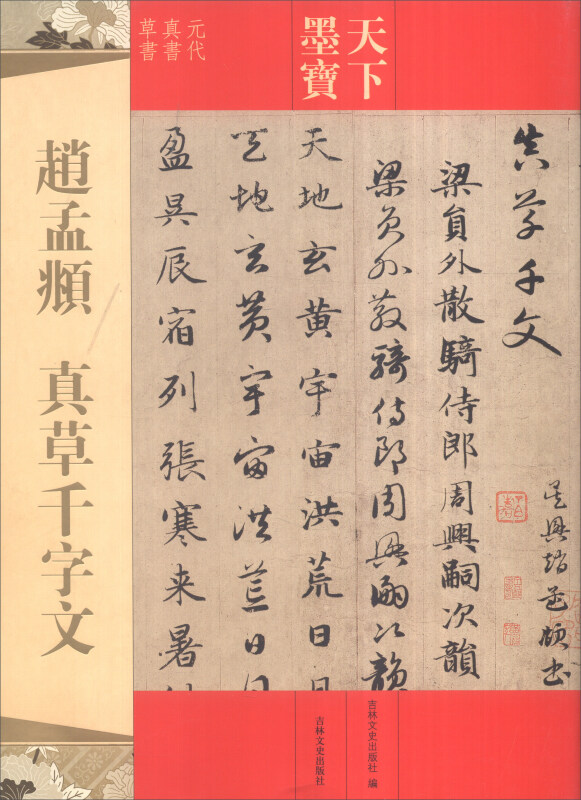 天下
墨寶
元代
真書
草書
趙孟頫 真草千字文
真草千文
吴興趙孟頫書
梁員外散騎侍郎周興嗣次韻
梁員外散騎侍郎周興嗣次韻
天地玄黄宇宙洪荒日
天地玄黄宇宙洪荒日
盈昃辰宿列張寒来暑
吉林文史出版社 編
吉林文史出版社